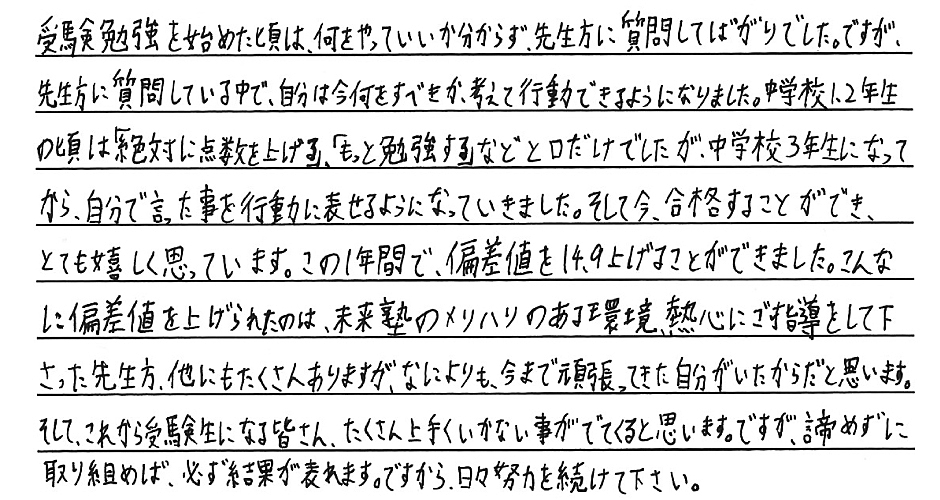 受験勉強を始めた頃は、何をやっていいか分からず、先生方に質問してばがりでした。ですが、
先生方に質問している中で、自分は今何をすべきか、考えて行動できるようになりました。中学校1、2年生
の頃は「絶対に点数を上げる」、「もっと勉強する」などと口だけでしたが、中学校3年生になって
から、自分で言った事を行動に表せるようになっていきました。そして今、合格することができ、
とても嬉しく思っています。この1年間で、偏差値を14.9上げることができました。こんな
に偏差値を上げられたのは、未来塾のメリハリのある環境、熱心にご指導をして下
さった先生方、他にもたくさんありますが、なによりも、今まで頑張ってきた自分がいたからだと思います。
そして、これから受験生になる皆さん、たくさん上手くいかない事がでてくると思います。ですが、諦めずに
取り組めば、必ず結果が表れます。ですから、日々努力を続けて下さい。